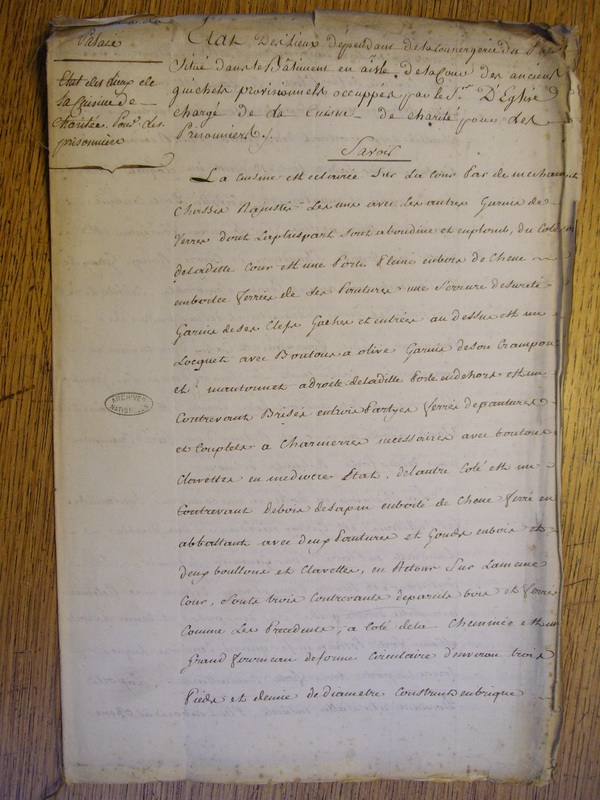 Palais
Etat des lieux de
la Cuisine de
Charitée. Pour des
prisonniers
Etat Des Lieux dépendans de la Conciergerie du Palais
Situé dans le Bâtiment en aisle de la Cour des anciens
guichets provisionnels occuppés par le Sr. D'Eglise
chargé de la Cuisine de charité pour les
Prisonniers.
Savoir
La Cuisine est éclairée Sur la cour Par de mechants
Chassis Rajustés les uns avec les autres Garnis de
Verres dont la pluspart sont a boudine et en plomb, du Coté
de laditte Cour est une Porte Pleine en bois de Chene
emboitée ferrée de ses Pentures une Serrure de sureté
Garnie de ses Clefs Gaches et entrées au dessus est un
Locquet avec Boutons a olive Garnis de son Crampon
et mantonnet a droite de laditte Porte en dehors est un
Contrevent Brisés en trois Partyes ferrés de pantures
et Couplets a Charnierres necessaires avec boutons
Clavettes en mediocre Etat, de lautre Coté est un
Contrevent de bois de sapin emboité de Chene ferré en
abbattant avec deux Pantures et Gonds en bois et
deux boullons et Clavettes, en Retour Sur la meme
Cour, Sont trois Contrevents de pareils bois et ferrés
Comme les Precedents, a Coté de la Cheminée est un
Grand fourneau de forme Circulaire d'environ trois
Pieds et demie de diametre Construit en brique
ARCHIVES
NATIONALES